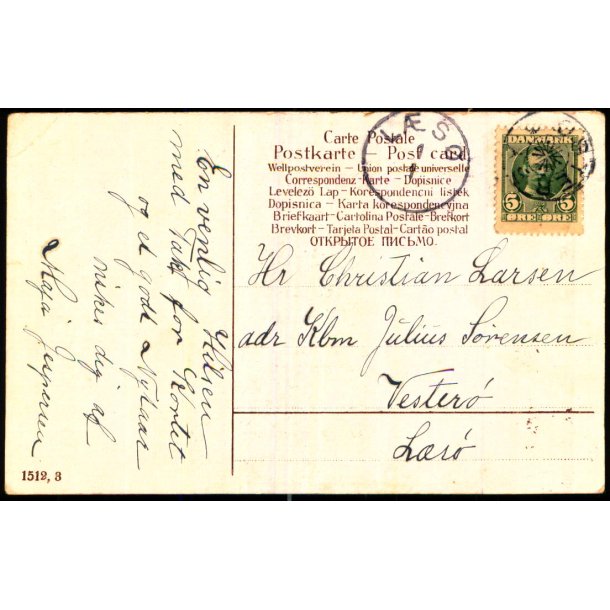 Carte Postale
Postkarte – Post card
Weltpostverein – Union postale universelle
Correspondenz-Karte – Dopisnice
Levelező Lap – Korespondenční lístek
Dopisnica – Karta korespondencyjna
Briefkaart – Cartolina Postale – Brefkort
Brevkort – Tarjeta Postal – Cartão postal
ОТКРЫТОЕ ПИСЬМО.
LÆSØ
1
DANMARK
5 5
ØRE ØRE
En venlig Hilsen
med Takt for Kortet
og et godt Nytaar
dig af
Maja Jespersen
Hr Christian Larsen
adr Kbm Julius Sørensen
Vesterö
Læsö
1512, 3